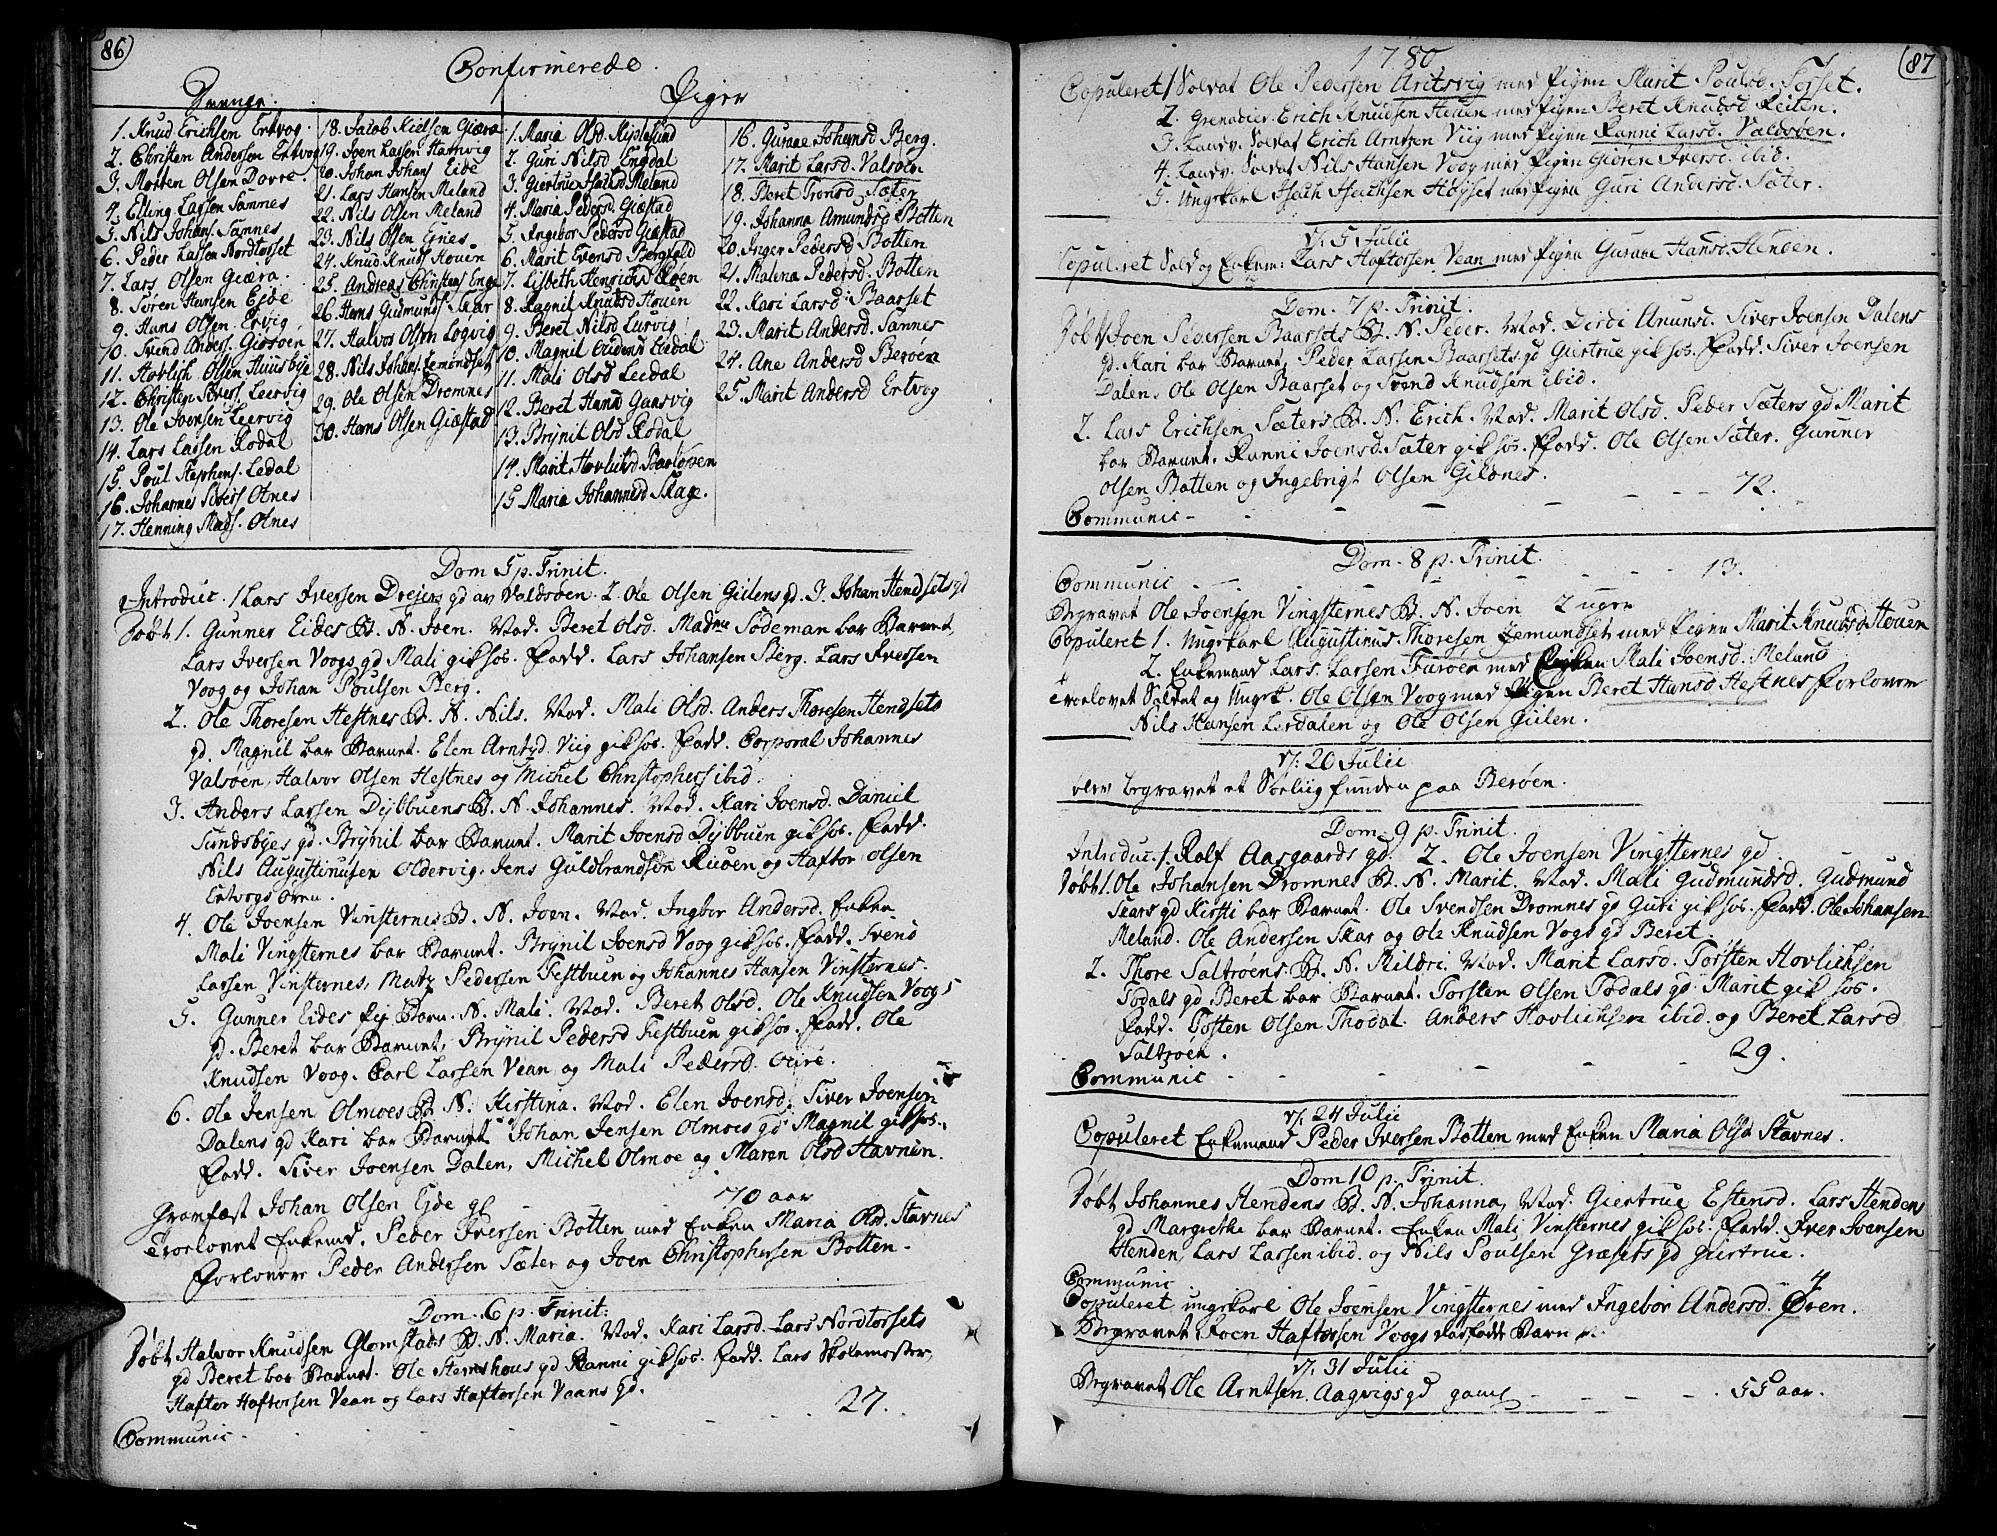 86
Confirmerede
Drenge.
1. Knud Erichsen Ertvog.
2. Christen Andersen Ertvog
3. Morten Olsen Dovre.
4. Elling Larsen Sannes
5. Nils Johans. Sannes
6. Peder Larsen Nordtorset
7. Lars Olsen Giæra.
8. Søren Hansen Ejde
9. Hans Olsen Ervig
10. Svend Anders. Giøsøen
11. Hovlich Olsen Huusbye
12. Christen Ivers. Leervig
13. Ole Joensen Leervig
14. Lars Larsen Rodal
15. Poul Stephens. Ledal
16. Johannes Sivers Otnes
17. Henning Mads. Otnes
18. Jacob Nielsen Giæra
19. Joen Larsen Hamvig
20. Johan Johans Eide
21. Lars Hansen Meland
22. Nils Olsen Meland
23. Nils Olsen Gnes.
24. Knud Knuds Houen
25. Andreas Christens Enge
26. Hans Gudmunds Skar
27. Halvor Olsen Logvig
28. Nils Johans. Gemondset
29. Ole Olsen Dromnes
30. Hans Olsen Giæstad
Piger
1. Maria Olsd.
2. Guri Nilsd Engdal
3. Giertrue Isachsd Meland
4. Maria Pedersd. Giæstad
5. Ingebor Pedersd Giæstad
6. Marit Evensd
7. Lisbeth Henrichsd Roen
8. Ragnil Knudsd Houen
9. Beret Nilsd Lurvig
10. Magnil Leedal
11. Mali Olsd Leedal
12. Beret Hansd Gaasvig
13. Brynil Olsd Rodal
14. Marit Hovlichsd
15. Maria Johannesd Skage.
16. Gunae Johansd Berg.
17. Marit Larsd. Valsøen
18. Beret Tronsd. Sæter
19. Johanna Amundsd Botten
20. Inger Pedersd Botten
21. Malena Pedersd. Botten
22. Kari Larsd. Baarset
23. Marit Andersd. Sannes
24. Ane Andersd Berøen
25. Marit Andersd Ertvog
Dom 5 p. Trinit.
Introduc. 1 Lars Iversen Drejers gd av Valdsøen. 2. Ole Olsen Gielens gd. 3. Johan Hendsets gd
Døbt 1. Gunner Eides B. N. Joen. Mod. Beret Olsd. Madme Sodeman bar Barnet,
Lars Iversen Voogs gd Mali gik hos. Fadd. Lars Johansen Berg. Lars Iversen
Voog og Johan Poulsen Berg.
2. Ole Thoresen Hestnes B. N. Nils. Mod. Mali Olsd. Anders Thoresen Hendsets
gd. Magnil bar Barnet. Elen Arntsd. Viig gik hos. Fadd. Corporal Johannes
Valsøen, Halvor Olsen Hestnes og Michel Christophers ibid.
3. Anders Larsen Dybbuens B. N. Johannes. Mod. Kari Joensd. Daniel
Sundsbyes gd. Brynil bar Barnet. Marit Joensd Dybbuen gik hos. Fadd.
Nils Augustinusen Oldervig. Jens Guldbrandsøn Ruøen og Haftor Olsen
Ertvogsøren.
4. Ole Joensen Vinsternes B. N. Joen. Mod. Ingbor Andersd. Enken
Mali Vingsternes bar Barnet. Brynil Joensd Voog gik hos. Fadd. Svend
Larsen Vinsternes, Matz Pedersen Festbuen og Johannes Hansen Vinsternes.
5. Gunner Eides Barn. N. Mali. Mod. Beret Olsd. Ole Knudsen Voogs
gd. Beret bar Barnet, Brynil Pedersd Festbuen gik hos. Fadd. Ole
Knudsen Voog. Carl Larsen Vean og Mali Pedersd. Giære.
6. Ole Jensen Olmoes B. N. Kirstina. Mod. Elen Joensd. Siver Joensen
Dalens gd Kari bar Barnet. Johan Jensen Olmoes gd Magnil gik hos.
Fadd. Siver Joensen Dalen, Michel Olmoe og Maren Olsd Havnen.
Gramfæst Johan Olsen Ejde gl - - 70 aar
Troelovet Enkemd. Peder Iversen Botten med Enken Maria Olsd. Stavnes
Forlovere Peder Andersen Sæter og Joen Christophersen Botten.
Dom. 6 p. Trinit.
Døbt Halvor Knudsen Glomstads B. N. Maria. Mod. Kari Larsd. Lars Nordtorsets
gd Beret bar Barnet. Ole Steenshous gd Ranni gik hos. Fadd. Lars Skolemester,
Hafter Haftorsen Vean og Lars Haftorsen Vaans gd.
Communic - - - 27.
87
1780
Copuleret 1 Soldat Ole Pedersen Aritsvig med Pigen Marit Poulsd. Torset.
2. Grenadier Erich Knudsen Henen med Pigen Beret Knudsd Reiten.
3. Landv. Soldat Erich Arntsen Viig med Pigen Ranni Larsd. Valdsøen.
4. Landv. Soldat Nils Hansen Voog med Pigen Giøren Iversd. ibid.
5. Ungkarl Isach Isachsen Høyset med Pigen Guri Andersd. Sæter.
d. 5 Julii
Copuleret Sold og Enkem: Lars Haftorsen Vean med Pigen Gunae Hansd. Hendén.
Dom. 7 p. Trinit.
Døbt 1 Joen Pedersen Baarsets B. N. Peder. Mod. Dirdi Anunsd. Siver Joensen Dalens
gd Kari bar Barnet, Peder Larsen Baarsets gd Giertrue gik hos. Fadd. Siver Joensen
Dalen, Ole Olsen Baarset og Svend Knudsen ibid.
2. Lars Erichsen Sæters B. N. Erich. Mod. Marit Olsd. Peder Sæters gd Marit
bar Barnet. Ranni Joensd. Sæter gik hos. Fadd. Ole Olsen Sæter. Gunner
Olsen Botten og Ingebrigt Olsen Gildnes.
Communic - - - 72.
Dom. 8 p. Trinit.
Communic - - - 13.
Begravet Ole Joensen Vingsternes B. N. Joen 2 uger
Copuleret 1. Ungkarl Augustinus Thoresen Gemundset med Pigen Marit Knudsd Houen
2. Enkemand Lars Larsen Furøen med Enken Mali Joensd. Meland
Troelovet Soldat og Ungk. Ole Olsen Voog med Pigen Beret Hansd Hestnes Forlovere
Nils Hansen Leedalen og Ole Olsen Gielen.
d. 20 Julii
blev begravet et Søeliig funden paa Berøen.
Dom. 9 p. Trinit.
Introduc. 1. Rolf Aasgaards gd. 2. Ole Joensen Vingsternes gd.
Døbt 1. Ole Johansen Dromnes B. N. Marit. Mod. Mali Gudmundsd. Gudmund
Skars gd Kirsti bar Barnet. Ole Svendsen Dromnes gd Guri gik hos. Fadd. Ole Johansen
Meland. Ole Andersen Skar og Ole Knudsen Vogs gd Beret.
2. Thore Saltrøens B. N. Mildri. Mod. Marit Larsd. Torsten Hovlichsen
Todals gd Beret bar Barnet. Torsten Olsen Todals gd Marit gik hos.
Fadd. Tosten Olsen Thodal. Anders Hovlichsen ibid. og Beret Larsd
Saltrøen.
Communic - - - 29.
d. 24 Julii
Copuleret Enkemand Peder Iversen Botten med Enken Maria Olsd Stavnes.
Dom 10 p. Trinit.
Døbt Johannes Hendens B. N. Johanna, Mod. Giertrue Estensd. Lars Hendens
gd Margrethe bar Barnet. Enken Mali Vinsternes gik hos. Fadd. Iver Joensen
Henden, Lars Larsen ibid. og Nils Poulsen Græsets gd Giertrue.
Communic - 7
Copuleret ungkarl Ole Joensen Vingsternes med Ingebor Andersd. Øren.
Begravet Roen Haftorsen Voogs dødfødt Barn
d. 31 Julii
Begravet Ole Arntsen Aagvigs gd gaml - - - 55 aar.